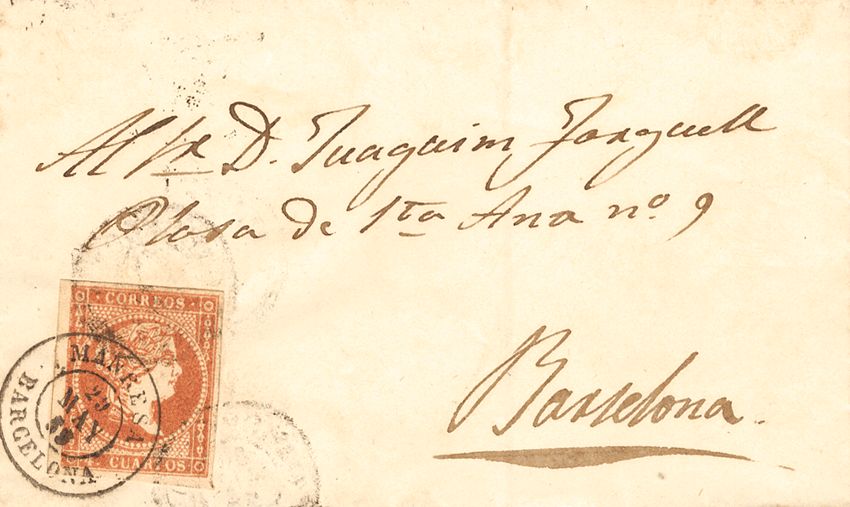 Al Sr D. Juaquim Farguell
Plasa de Sta Ana nº 9
Barselona.
CORREOS
CUARTOS
MANRESA
29
MAY
BARCELONA